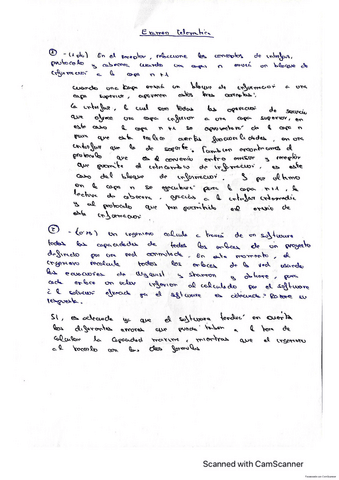 Examen Telemática
① - (1 pto) En el receptor, relacione los conceptos de interfaz,
protocolo y cuando una capa n envía un bloque de
información a la capa n+1
Cuando una capa envía un bloque de información a una
capa superior, aparecen estos tres conceptos:
la interfaz, la cual son todas las operaciones de servicio
que ofrece una capa inferior a una capa superior, en
este caso la capa n+1 se de la capa n
para que esta realice ciertas funcionalidades, en una
interfaz que le de soporte. También encontramos el
protocolo que es el convenio entre emisor y receptor
que permite el intercambio de información, en este
caso del bloque de información. Y por último
en la capa n se para la capa n+1, la
gracias a la interfaz
y al protocolo que han permitido el envío de
esta información.
② - Un ingeniero calcula a través de un software
todas las capacidades de todos los enlaces de un proyecto
definido por una red conmutada. En este momento, el
ingeniero todos los enlaces de la red usando
las ecuaciones de Nyquist y Shannon y obtiene, para
cada enlace un valor inferior al calculado por el software
¿la solución por el software es adecuada? Razone su
respuesta.
Sí, es adecuada ya que el software tendrá en cuenta
los diferentes errores que puede haber a la hora de
calcular la capacidad máxima, mientras que el ingeniero
al hacerlo con las dos fórmulas
Scanned with CamScanner